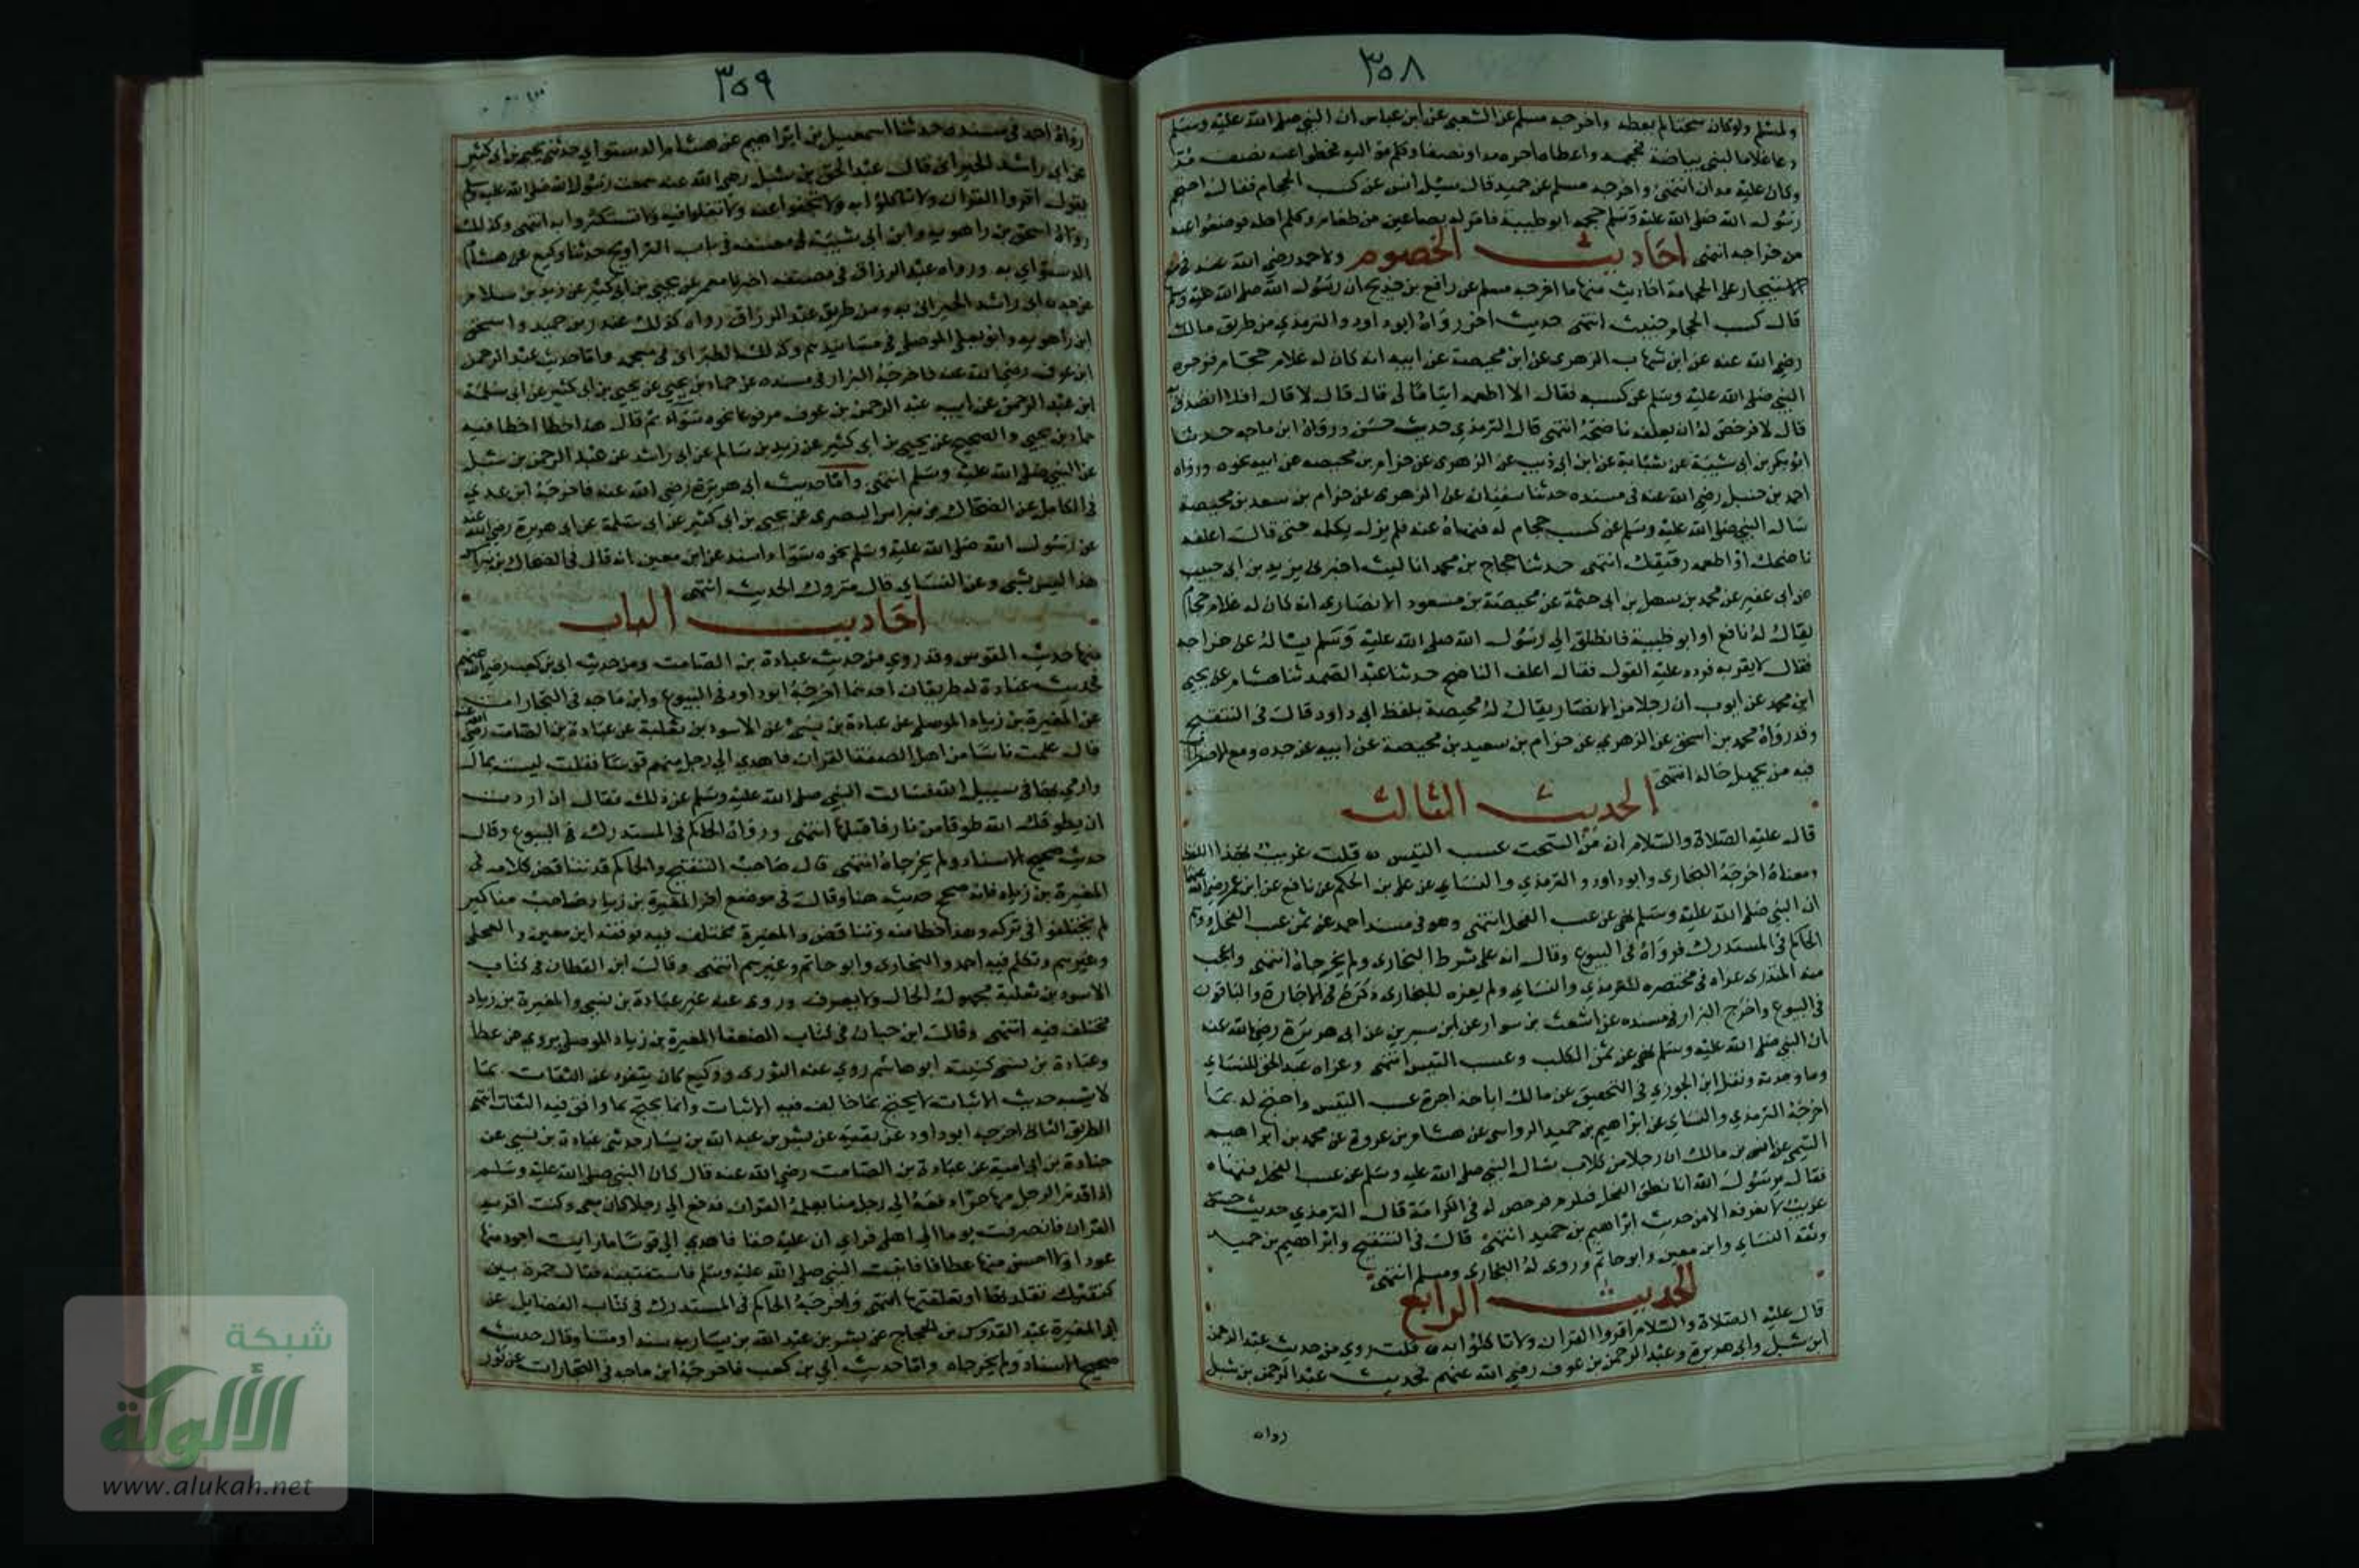 ٣٥٨
ولمسلم ولو كان سحتا لم يعطه واخرجه مسلم عن الشعبي عن ابن عباس ان النبي صلى الله عليه وسلم
دعا غلاما لبني بياضة فحجمه واعطاه اجره مدا ونصفا وكلم مواليه فحطوا عنه نصف مد
وكان عليه مدان انتهى واخرجه مسلم عن حميد قال سئل انس عن كسب الحجام فقال احتجم
رسول الله صلى الله عليه وسلم حجمه ابو طيبة فامر له بصاعين من طعام وكلم اهله فوضعوا عنه
من خراجه انتهى احاديث الخصوم ولاحمد رضي الله عنه في منع
الاستيجار على الحجامة احاديث منها ما اخرجه مسلم عن رافع بن خديج ان رسول الله صلى الله عليه وسلم
قال كسب الحجام خبيث انتهى حديث اخر رواه ابو داود والترمذي من طريق مالك
رضي الله عنه عن ابن شهاب الزهري عن ابن محيصة عن ابيه انه كان له غلام حجام فزجره
النبي صلى الله عليه وسلم عن كسبه فقال الا اطعمه ايتاما لي قال لا قال افلا اتصدق به
قال لا فرخص له ان يعلفه ناضحه انتهى قال الترمذي حديث حسن ورواه ابن ماجه حدثنا
ابو بكر بن ابي شيبة عن شبابة عن ابن ابي ذيب عن الزهري عن حزام بن محيصة عن ابيه نحوه ورواه
احمد بن حنبل رضي الله عنه في مسنده حدثنا سفيان عن الزهري عن حزام بن سعد بن محيصة
سال النبي صلى الله عليه وسلم عن كسب حجام له فنهاه عنه فلم يزل يكلمه حتى قال اعلفه
ناضحك او اطعمه رقيقك انتهى حدثنا حجاج بن محمد انا ليث اخبرني يزيد بن ابي حبيب
عن ابي عفير عن محمد بن سهل بن ابي حثمة عن محيصة بن مسعود الانصاري انه كان له غلام حجام
يقال له نافع ابو طيبة فانطلق الى رسول الله صلى الله عليه وسلم يساله عن خراجه
فقال لا يقربه فردد عليه القول فقال اعلف الناضح حدثنا عبد الصمد ثنا هشام عن يحيى
ابن محمد عن ايوب ان رجلا من الانصار يقال له محيصة بلفظ ابي داود قال في التنقيح
وقد رواه محمد بن اسحق عن الزهري عن حزام بن سعيد بن محيصة عن ابيه عن جده ومع الاضطراب
فيه من يجهل حاله انتهى
الحديث الثالث
قال عليه الصلاة والسلام ان من السحت عسب التيس ه قلت غريب بهذا اللفظ
ومعناه اخرجه البخاري وابو داود والترمذي والنسائي عن علي بن الحكم عن نافع عن ابن عمر رضي الله عنهما
ان النبي صلى الله عليه وسلم نهى عن عسب الفحل انتهى وهو في مسند احمد عن ثمن عسب الفحل ووهم
الحاكم في المستدرك فرواه في البيوع وقال انه على شرط البخاري ولم يخرجاه انتهى واعجب
منه المنذري عزاه في مختصره للترمذي والنساي ولم يعزه للبخاري ذكره في الاجارة والباقون
في البيوع واخرج البزار في مسنده عن اشعث بن سوار عن ابن سيرين عن ابي هريرة رضي الله عنه
ان النبي صلى الله عليه وسلم نهى عن ثمن الكلب وعسب التيس انتهى وعزاه عبد الحق للنساي
وما وجدته ونقل ابن الجوزي في التحقيق عن مالك اباحة اجرة عسب التيس واحتج له بما
اخرجه الترمذي والنساي عن ابراهيم بن حميد الرواسي عن هشام بن عروة عن محمد بن ابراهيم
التيمي عن انس بن مالك ان رجلا من كلاب سال النبي صلى الله عليه وسلم عن عسب الفحل فنهاه
فقال يرسول الله انا نطرق الفحل فنكرم فرخص له في الكرامة قال الترمذي حديث حسن
غريب لا نعرفه الا من حديث ابراهيم بن حميد انتهى قال في التنقيح وابراهيم بن حميد
وثقه النساي وابن معين وابو حاتم وروى له البخاري ومسلم انتهى
الحديث الرابع
قال عليه الصلاة والسلام اقروا القران ولا تاكلوا به ه قلت روي من حديث عبد الرحمن
ابن شبل وابي هريرة وعبد الرحمن بن عوف رضي الله عنهم فحديث عبد الرحمن بن شبل
رواه
٣٥٩
رواه احمد في مسنده حدثنا اسمعيل بن ابراهيم عن هشام الدستواي حدثني يحيى بن ابي كثير
عن ابي راشد الحبراني قال عبد الحق بن شبل رضي الله عنه سمعت رسول الله صلى الله عليه وسلم
يقول اقروا القران ولا تاكلوا به ولا تجفوا عنه ولا تغلوا فيه ولا تستكثروا به انتهى وكذلك
رواه اسحق بن راهويه وابن ابي شيبة في مصنفه في باب التراويح حدثنا وكيع عن هشام
الدستواي به ورواه عبد الرزاق في مصنفه اخبرنا معمر عن يحيى بن ابي كثير عن زيد بن سلام
عن جده ابي راشد الحبراني به ومن طريق عبد الرزاق رواه كذلك عبد بن حميد واسحق
ابن راهويه وابو يعلى الموصلي في مسانيدهم وكذلك الطبراني في معجمه واما حديث عبد الرحمن
ابن عوف رضي الله عنه فاخرجه البزار في مسنده عن حماد بن يحيى عن يحيى بن ابي كثير عن ابي سلمة
ابن عبد الرحمن عن ابيه عبد الرحمن بن عوف مرفوعا نحوه سواء ثم قال هذا خطا اخطا فيه
حماد بن يحيى والصحيح عن يحيى بن ابي كثير عن زيد بن سالم عن ابي راشد عن عبد الرحمن بن شبل
عن النبي صلى الله عليه وسلم انتهى واما حديث ابي هريرة رضي الله عنه فاخرجه ابن عدي
في الكامل عن الضحاك بن نبراس البصري عن يحيى بن ابي كثير عن ابي سلمة عن ابي هريرة رضي الله عنه
عن رسول الله صلى الله عليه وسلم نحوه سواء واسند عن ابن معين انه قال في الضحاك بن نبراس
هذا ليس بشي وعن النساي قال متروك الحديث انتهى
احاديث الباب
منها حديث القوس وقد روي من حديث عبادة بن الصامت ومن حديث ابي بن كعب رضي الله عنهم
فحديث عبادة له طريقان احدهما اخرجه ابو داود في البيوع وابن ماجه في التجارات
عن المغيرة بن زياد الموصلي عن عبادة بن نسي عن الاسود بن ثعلبة عن عبادة بن الصامت رضي الله عنه
قال علمت ناسا من اهل الصفة القران فاهدى الي رجل منهم قوسا فقلت ليست بمال
وارمي بها في سبيل الله فسالت النبي صلى الله عليه وسلم عن ذلك فقال ان اردت
ان يطوقك الله طوقا من نار فاقبلها انتهى ورواه الحاكم في المستدرك في البيوع وقال
حديث صحيح الاسناد ولم يخرجاه انتهى قال صاحب التنقيح والحاكم قد تناقض كلامه في
المغيرة بن زياد فانه صحح حديثه هنا وقال في موضع اخر المغيرة بن زياد صاحب مناكير
لم يختلفوا في تركه وهذا خطا منه وتناقض والمغيرة مختلف فيه فوثقه ابن معين والعجلي
وغيرهم وتكلم فيه احمد والبخاري وابو حاتم وغيرهم انتهى وقال ابن القطان في كتابه
الاسود بن ثعلبة مجهول الحال ولا يعرف روى عنه غير عبادة بن نسي والمغيرة بن زياد
مختلف فيه انتهى وقال ابن حبان في كتاب الضعفا المغيرة بن زياد الموصلي يروي عن عطا
وعبادة بن نسي كنيته ابو هاشم روى عنه الثوري ووكيع كان يتفرد عن الثقات بما
لا يشبه حديث الاثبات لا يحتج بما خالف فيه الاثبات وانما يحتج بما وافق فيه الثقات انتهى
الطريق الثاني اخرجه ابو داود عن بقية عن بشر بن عبد الله بن يسار حدثني عبادة بن نسي عن
جنادة بن ابي امية عن عبادة بن الصامت رضي الله عنه قال كان النبي صلى الله عليه وسلم
اذا قدم الرجل مهاجرا دفعه الى رجل منا يعلمه القران فدفع الي رجلا كان معي وكنت اقريه
القران فانصرفت يوما الى اهلي فراى ان عليه حقا فاهدى الي قوسا ما رايت اجود منها
عودا ولا احسن منها عطافا فاتيت النبي صلى الله عليه وسلم فاستفتيته فقال جمرة بين
كتفيك تقلدتها او تعلقتها انتهى واخرجه الحاكم في المستدرك في كتاب الفضايل عن
ابي المغيرة عبد القدوس بن الحجاج عن بشر بن عبد الله بن يسار به سندا ومتنا وقال حديث
صحيح الاسناد ولم يخرجاه واما حديث ابي بن كعب فاخرجه ابن ماجه في التجارات عن ثور
شبكة
الألوكة
www.alukah.net